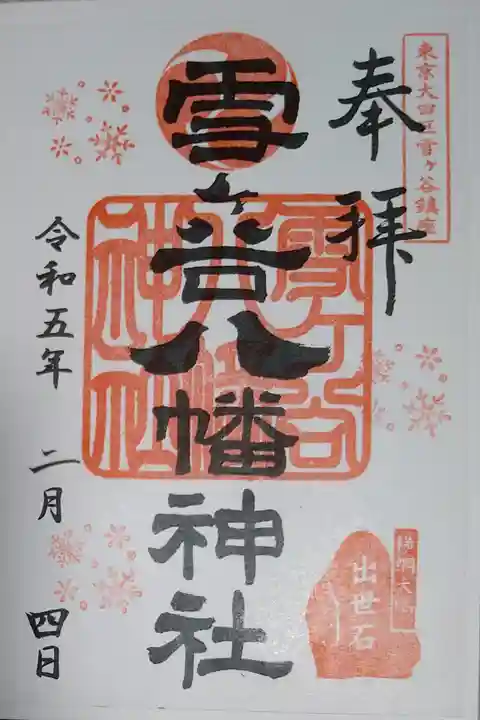 東京大田区雪ヶ谷鎮座
奉拝
雪ヶ谷八幡神社
雪ヶ谷
八幡
神社
令和五年 二月 四日
横綱大鵬
出世石